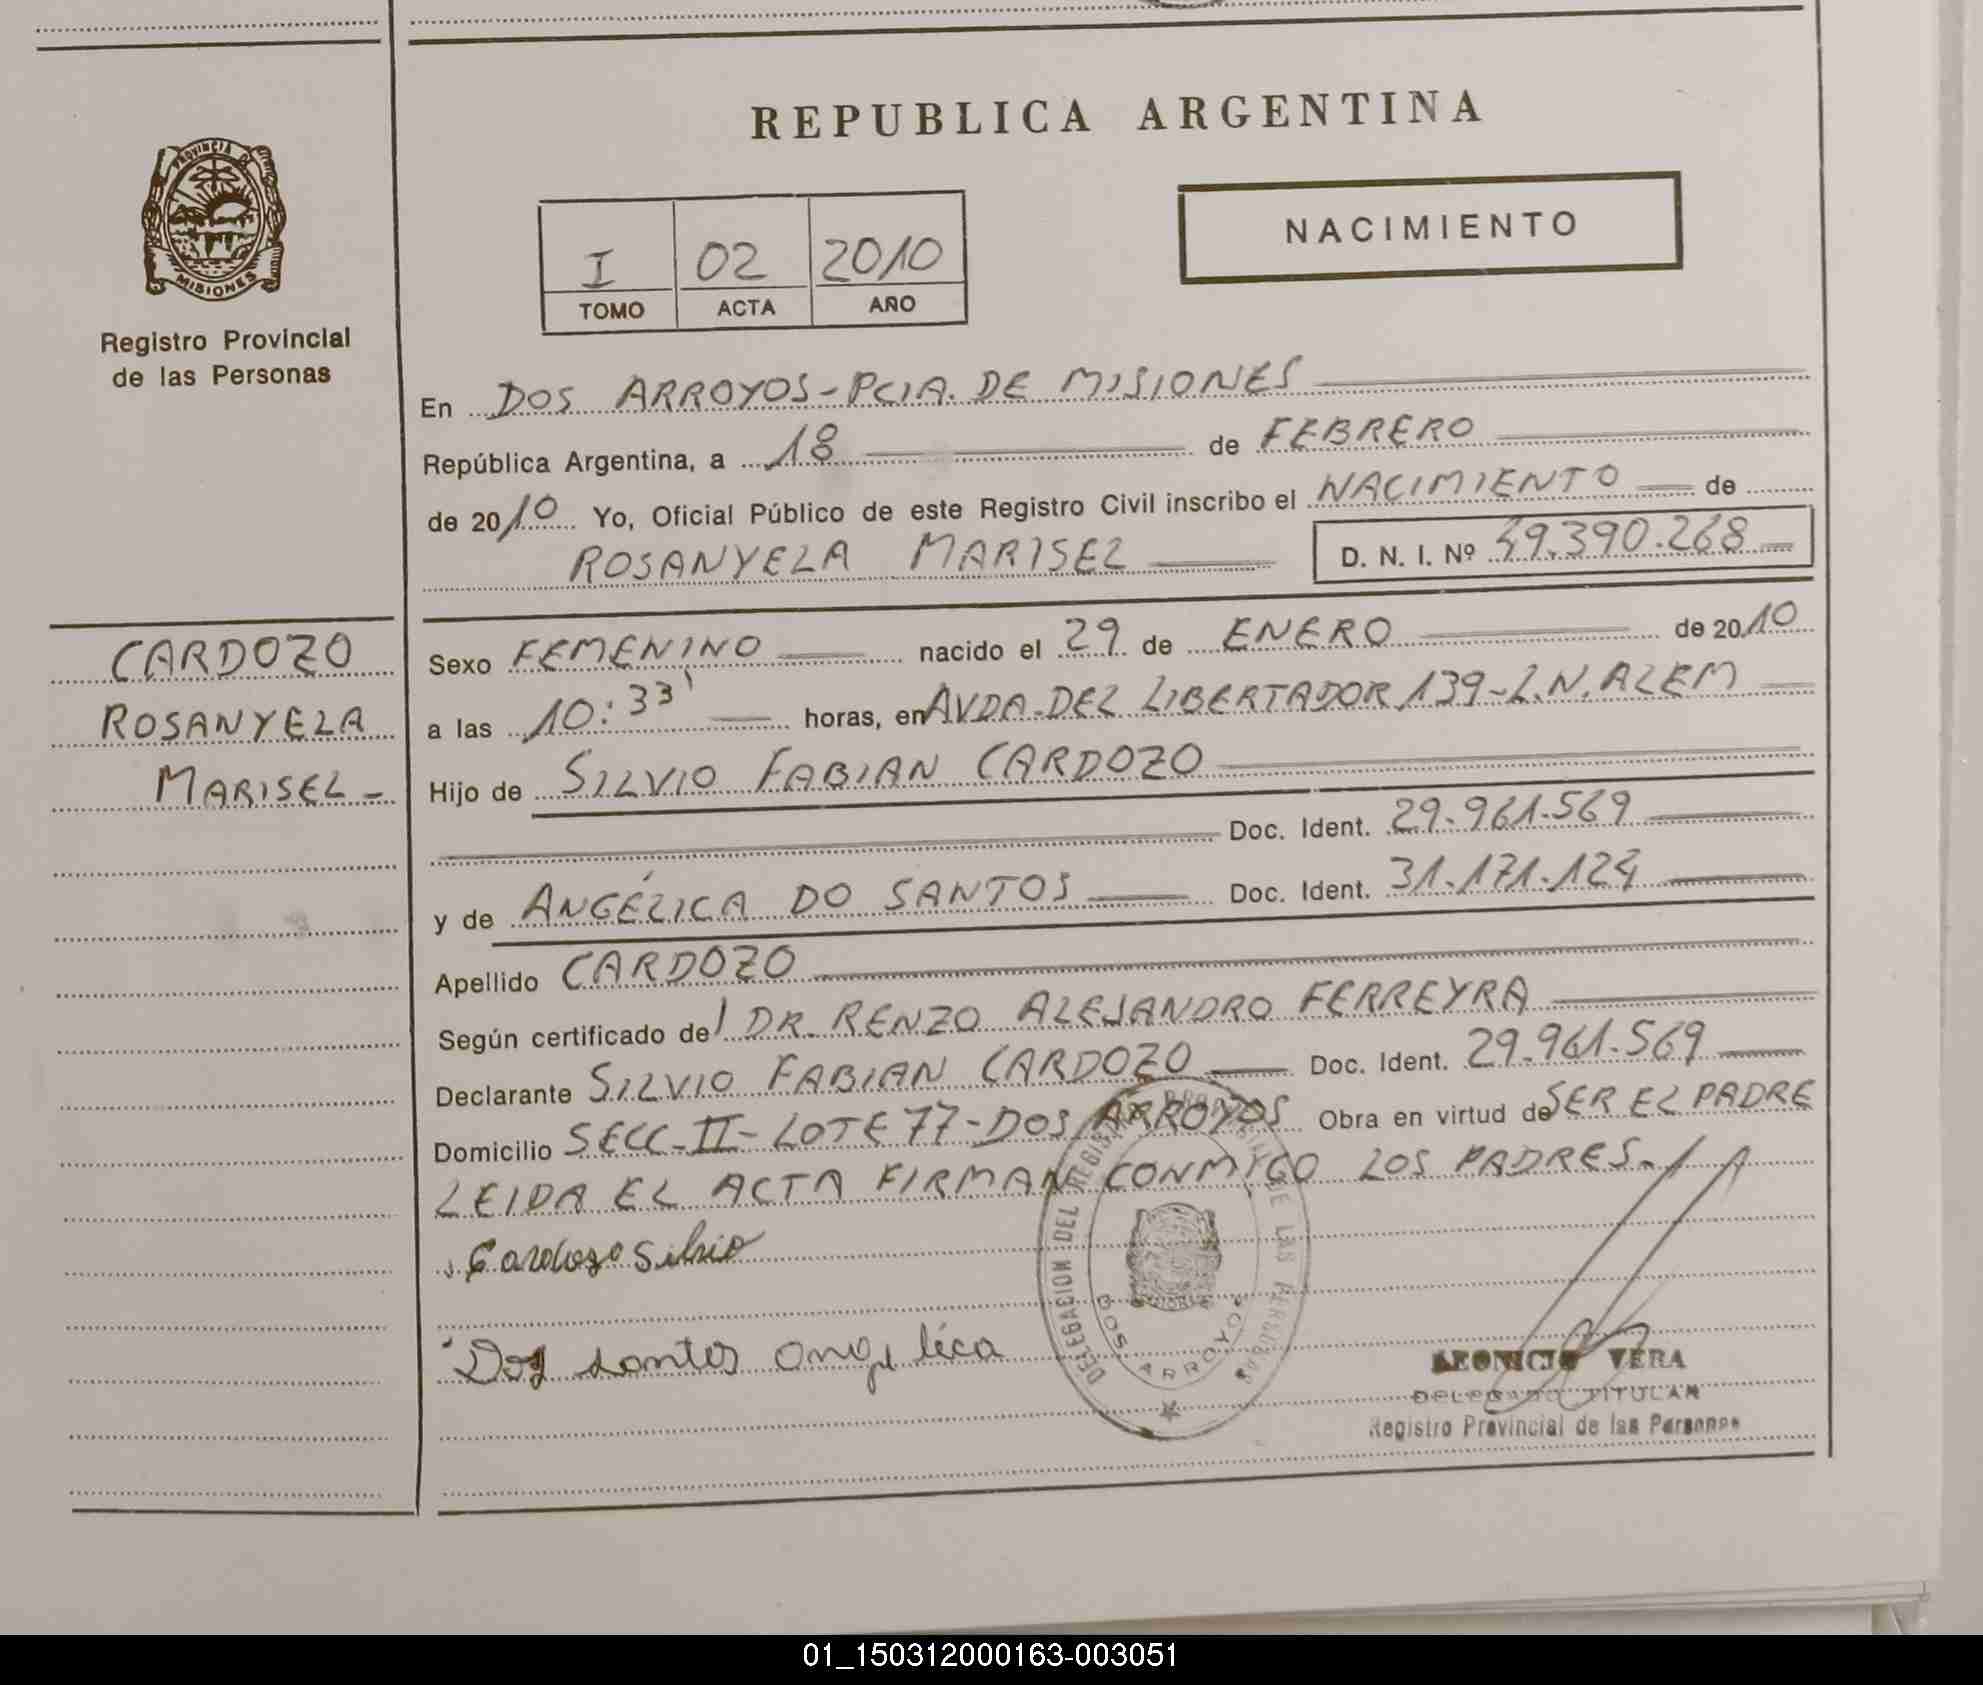 REPUBLICA ARGENTINA
PROVINCIA DE
MISIONES
Registro Provincial
de las Personas
NACIMIENTO
I 02 2010
TOMO ACTA AÑO
En DOS ARROYOS-PCIA. DE MISIONES
República Argentina, a 18 de FEBRERO
de 2010 Yo, Oficial Público de este Registro Civil inscribo el NACIMIENTO de
ROSANYELA MARISEL D. N. I. Nº 49.390.268
CARDOZO
ROSANYELA
MARISEL-
Sexo FEMENINO nacido el 29 de ENERO de 2010
a las 10:33' horas, en AVDA. DEL LIBERTADOR 139-L.N. ALEM
Hijo de SILVIO FABIAN CARDOZO
Doc. Ident. 29.961.569
y de ANGÉLICA DO SANTOS Doc. Ident. 31.171.124
Apellido CARDOZO
Según certificado del DR. RENZO ALEJANDRO FERREYRA
Declarante SILVIO FABIAN CARDOZO Doc. Ident. 29.961.569
Domicilio SECC-II-LOTE 77-DOS ARROYOS Obra en virtud de SER EL PADRE
LEIDA EL ACTA FIRMAN CONMIGO LOS PADRES.-
Cardozo Silvio
Dos santos Angelica
DELEGACION DEL REGISTRO PROVINCIAL DE LAS PERSONAS
DOS ARROYOS
LEONICIO VERA
DELEGADO TITULAR
Registro Provincial de las Personas
01_150312000163-003051